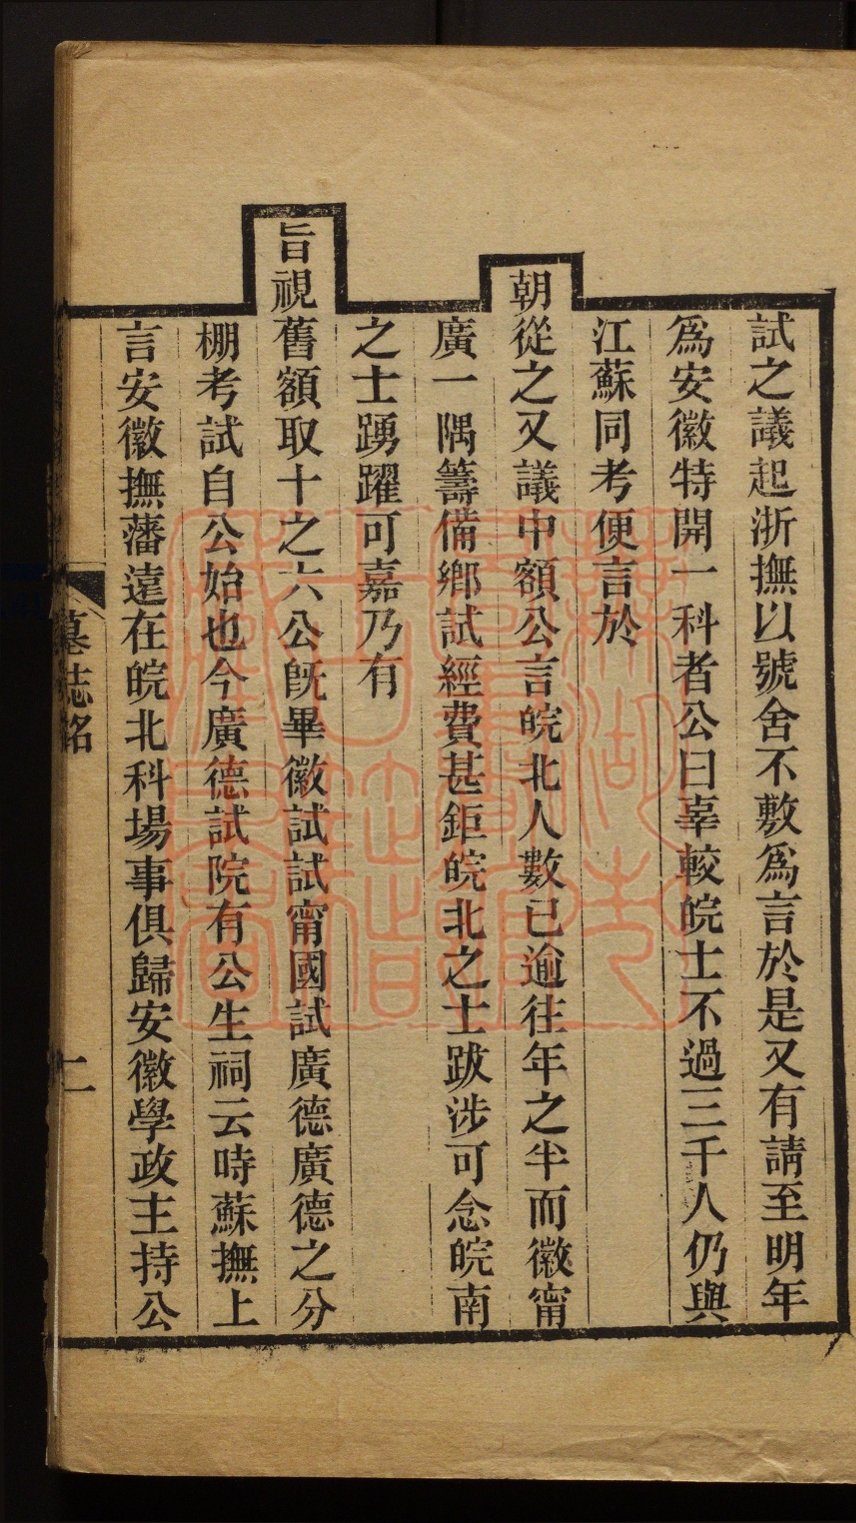 試之議起浙撫以號舍不敷爲言於是又有請至明年
爲安徽特開一科者公曰辜較皖士不過三千人仍與
江蘇同考便言於
朝從之又議中額公言皖北人數已逾往年之半而徽甯
廣一隅籌備鄕試經費甚鉅皖北之士跋涉可念皖南
之士踴躍可嘉乃有
旨視舊額取十之六公旣畢徽試試甯國試廣德廣德之分
棚考試自公始也今廣德試院有公生祠云時蘇撫上
言安徽撫藩遠在皖北科場事俱歸安徽學政主持公
墓誌銘
二